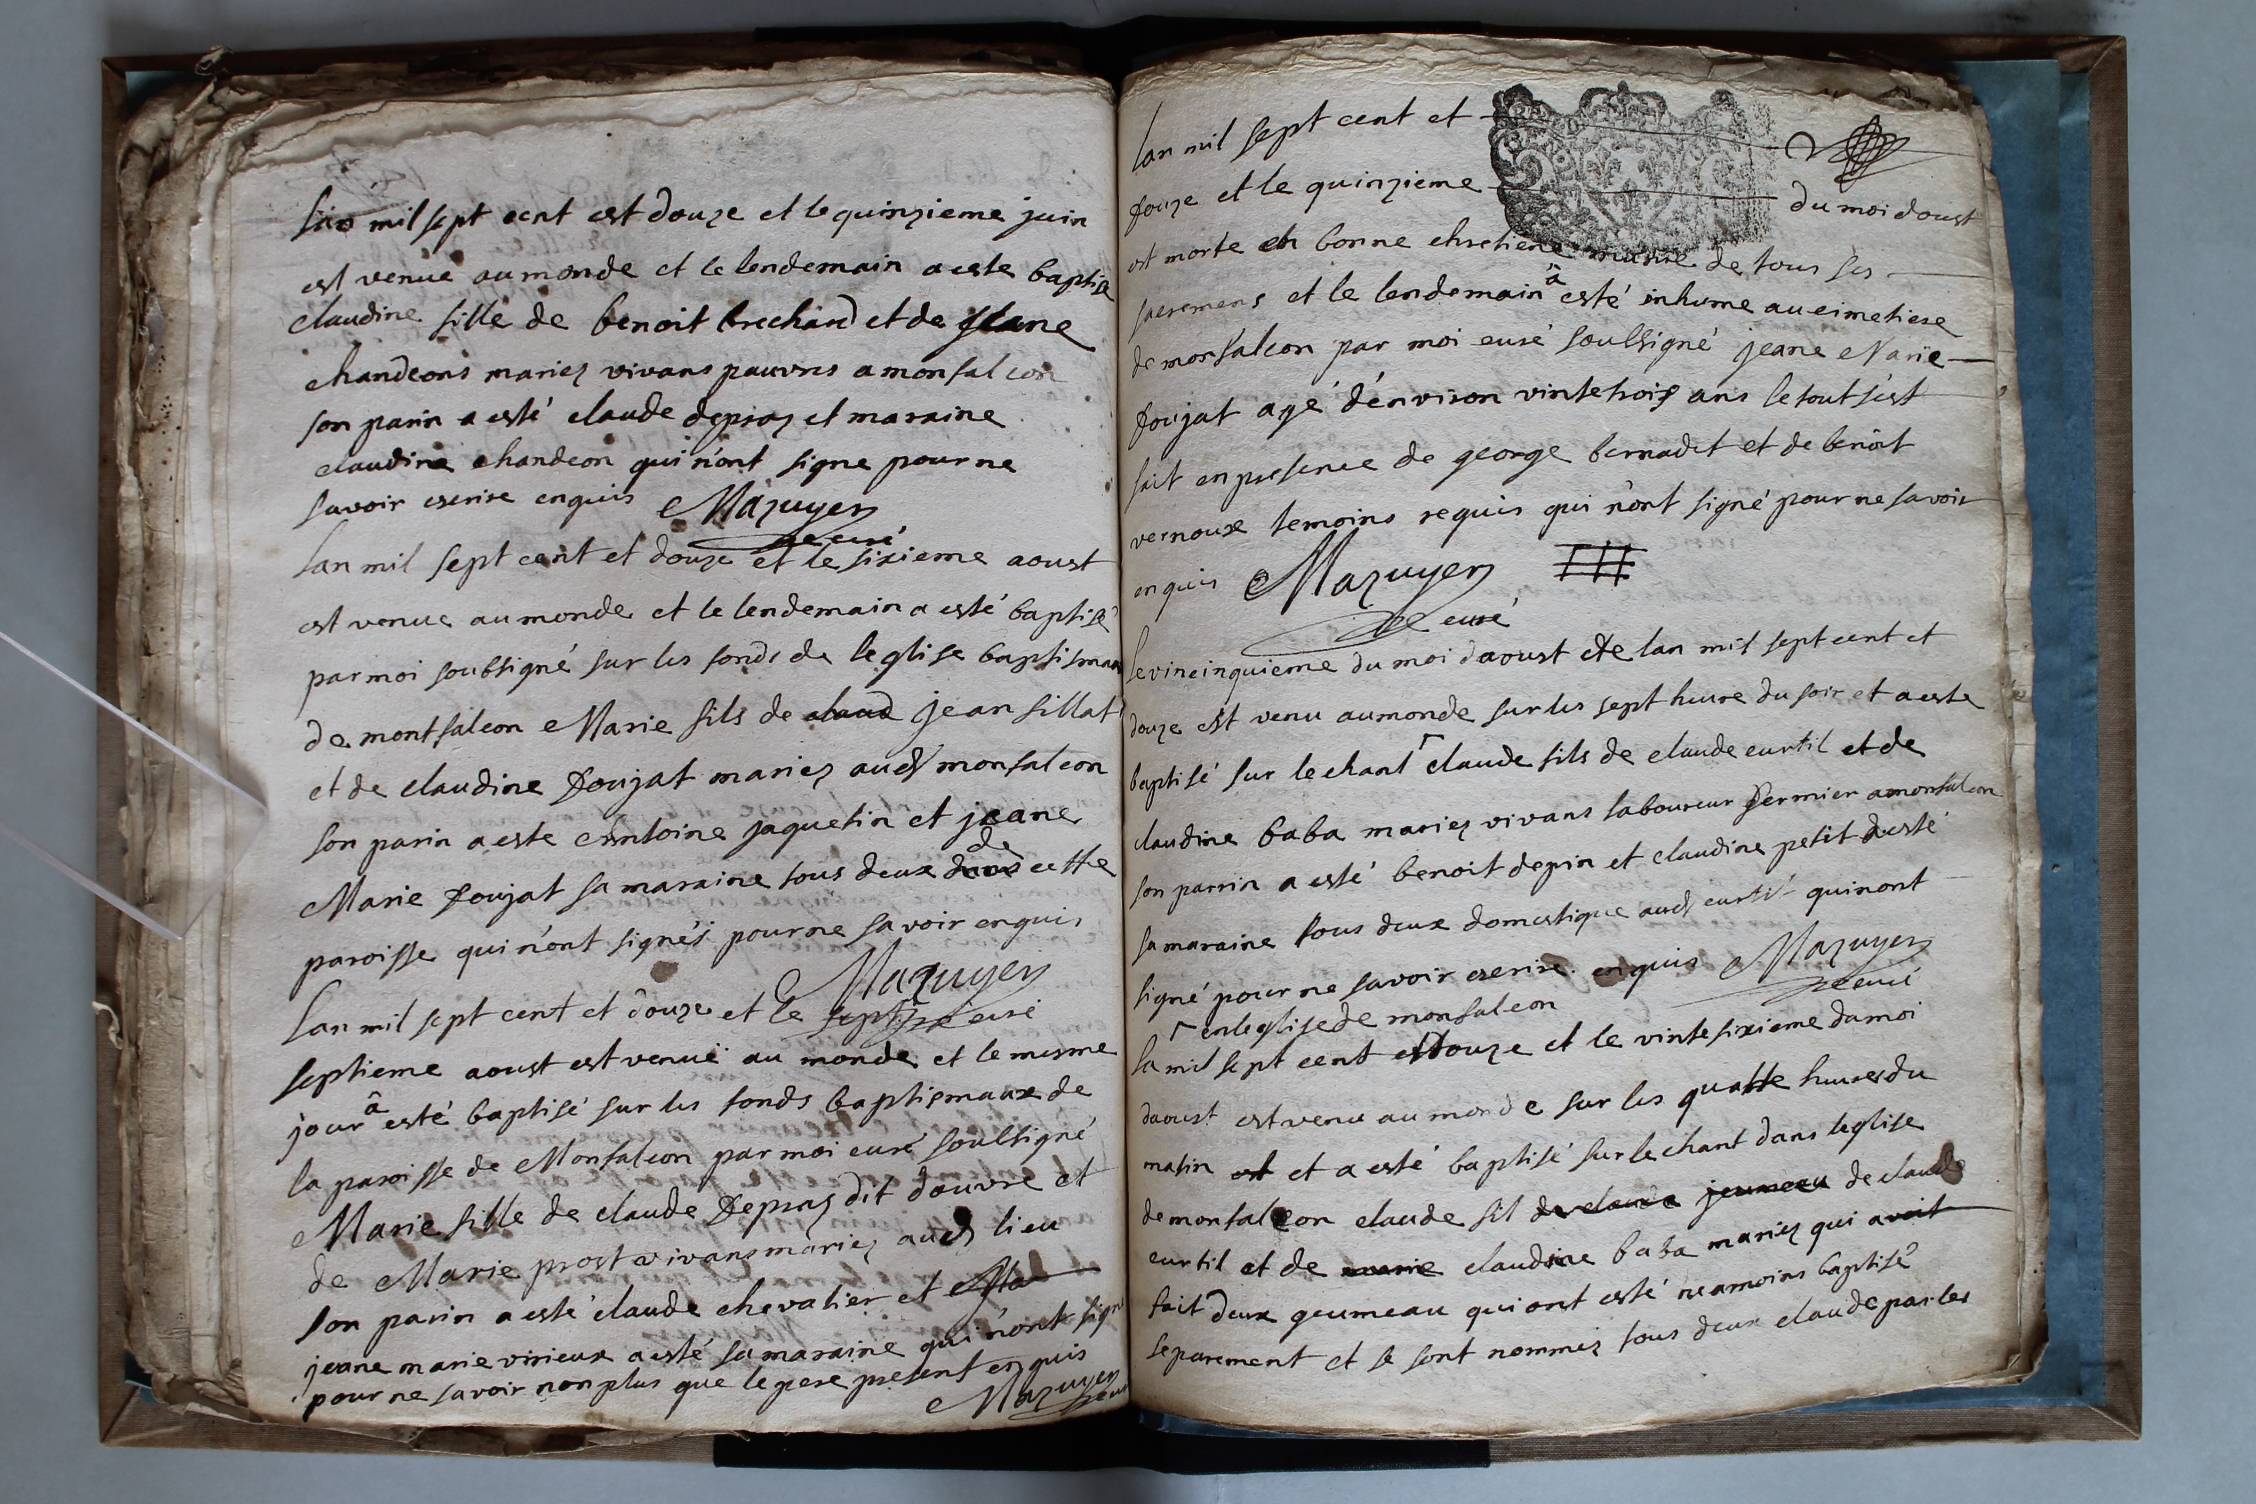 Lan mil sept cent est douze et le quinzieme juin
est venue au monde et le lendemain a este baptise
claudine fille de benoit brechard et de jeane
chandeons mariez vivans pauvres a monfalcon
son parin a esté claude depraz et maraine
claudine chandeon qui n'ont signe pour ne
savoir escrire enquis Mazuyer
curé
Lan mil sept cent et douze et le sixieme aoust
est venue au monde et le lendemain a esté baptisé
par moi soubsigné sur les fonds de leglise baptismau
de montfalcon Marie fils de claud jean fillat
et de claudine Poujat mariez aud monfalcon
son parin a este Antoine jaquetin et jeane
de
Marie Poujat sa maraine tous deux dans cette
paroisse qui n'ont signés pour ne savoir enquis
Mazuyer
Lan mil sept cent et douze et le septi curé
septieme aoust est venuë au monde et le mesme
jour â esté baptisé sur les fonds baptismaux de
la paroisse de Monfalcon par moi curé soubsigné
Marie fille de claude Depraz dit douvre et
de Marie prost vivans mariez aud lieu
son parin a esté claude chevalier et Ma
jeane marie virieux a esté sa maraine qui n'ont signé
pour ne savoir non plus que le pere present enquis
Mazuyer curé
Lan mil sept cent et
douze et le quinzieme du moi doust
est morte en bonne chretiene munie de tous ses
sacremens et le lendemain â esté inhume au cimetiere
de monfalcon par moi curé soubsigné jeane Marie
Poujat agé d'environ vintetrois ans le tout s'est
fait en presence de george bernadet et de benoit
vernoux temoins requis qui n'ont signé pour ne savoir
enquis Mazuyer
curé
le vincinquieme du moi daoust de lan mil sept cent et
douze est venu au monde sur les sept heure du soir et a este
baptisé sur le chant claude fils de claude curtil et de
claudine baba mariez vivans laboureur fermier a monfalcon
son parrin a esté benoit depin et claudine petit a esté
sa maraine tous deux domestique aud curtil qui nont
signé pour ne savoir escrire enquis Mazuyer
curé
en leglise de monfalcon
La mil sept cent et douze et le vintesixieme du moi
daoust est venu au monde sur les quatte heures du
matin est et a esté baptisé sur le chant dans leglise
de monfalcon claude fil de claude jeumeau de claude
curtil et de marie claudine baba mariez qui avoit
fait deux geumeau qui ont esté neamoins baptisé
separement et se sont nommez tous deux claude par les